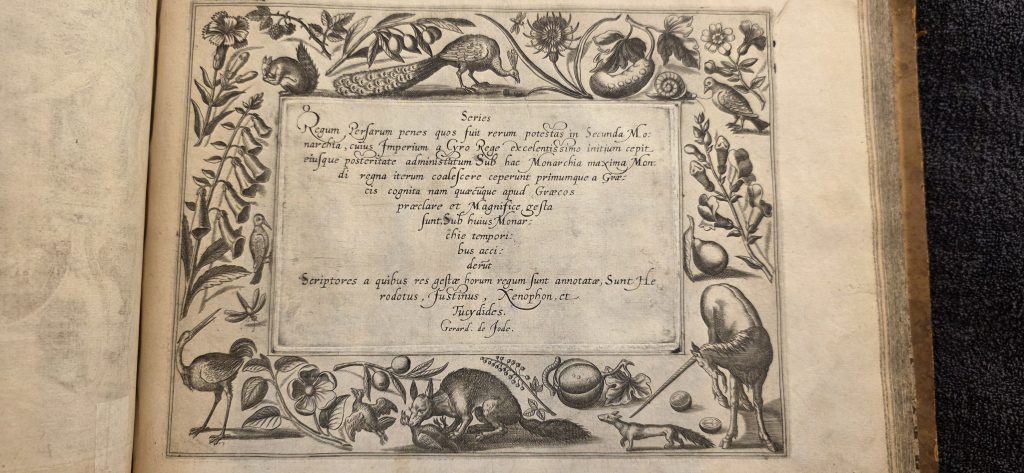 Series
Regum Persarum penes quos fuit rerum potestas in Secunda Mo:
narchia, cuius Imperium a Cyro Rege excelentissimo initium cepit
eiusque posteritate administratum Sub hac Monarchia maxima Mon:
di regna iterum coalescere ceperunt primumque a Græ:
cis cognita nam quæcu̅que apud Græcos
præclare et Magnifice gesta
sunt, Sub huius Monar:
chie tempori:
bus acci:
deru̅t
Scriptores a quibus res gestæ horum regum sunt annotatæ, Sunt He
rodotus, Justinus, Xenophon, et
Tucydides.
Gerard. de Jode.